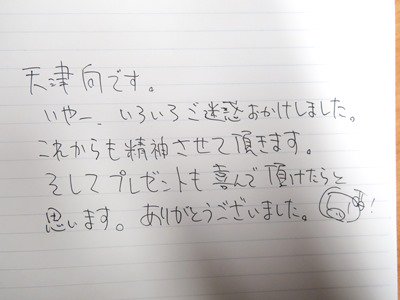 天津向です。
いやー、いろいろご迷惑おかけしました。
これからも精神させて頂きます。
そしてプレゼントも喜んで頂けたらと
思います。ありがとうございました。